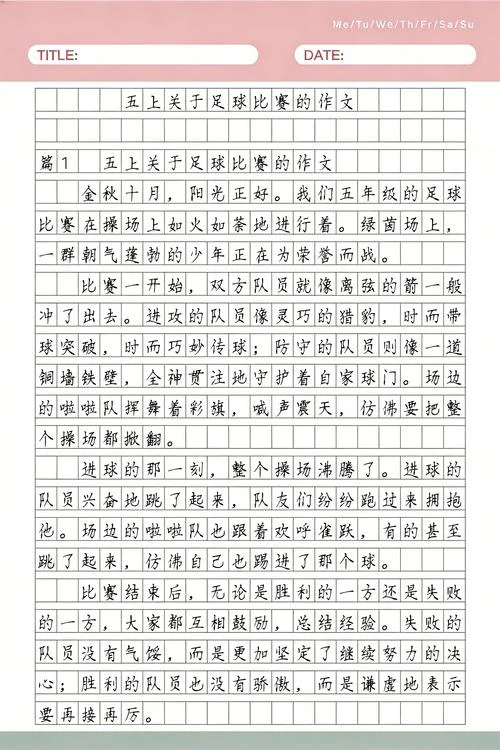 Me/Tu/We/Th/Fr/Sa/Su
TITLE:
DATE:
五上关于足球比赛的作文
篇1 五上关于足球比赛的作文
金秋十月，阳光正好。我们五年级的足球
比赛在操场上如火如荼地进行着。绿茵场上，
一群朝气蓬勃的少年正在为荣誉而战。
比赛一开始，双方队员就像离弦的箭一般
冲了出去。进攻的队员像灵巧的猎豹，时而带
球突破，时而巧妙传球；防守的队员则像一道
铜墙铁壁，全神贯注地守护着自家球门。场边
的啦啦队挥舞着彩旗，喊声震天，仿佛要把整
个操场都掀翻。
进球的那一刻，整个操场沸腾了。进球的
队员兴奋地跳了起来，队友们纷纷跑过来拥抱
他。场边的啦啦队也跟着欢呼雀跃，有的甚至
跳了起来，仿佛自己也踢进了那个球。
比赛结束后，无论是胜利的一方还是失败
的一方，大家都互相鼓励，总结经验。失败的
队员没有气馁，而是更加坚定了继续努力的决
心；胜利的队员也没有骄傲，而是谦虚地表示
要再接再厉。